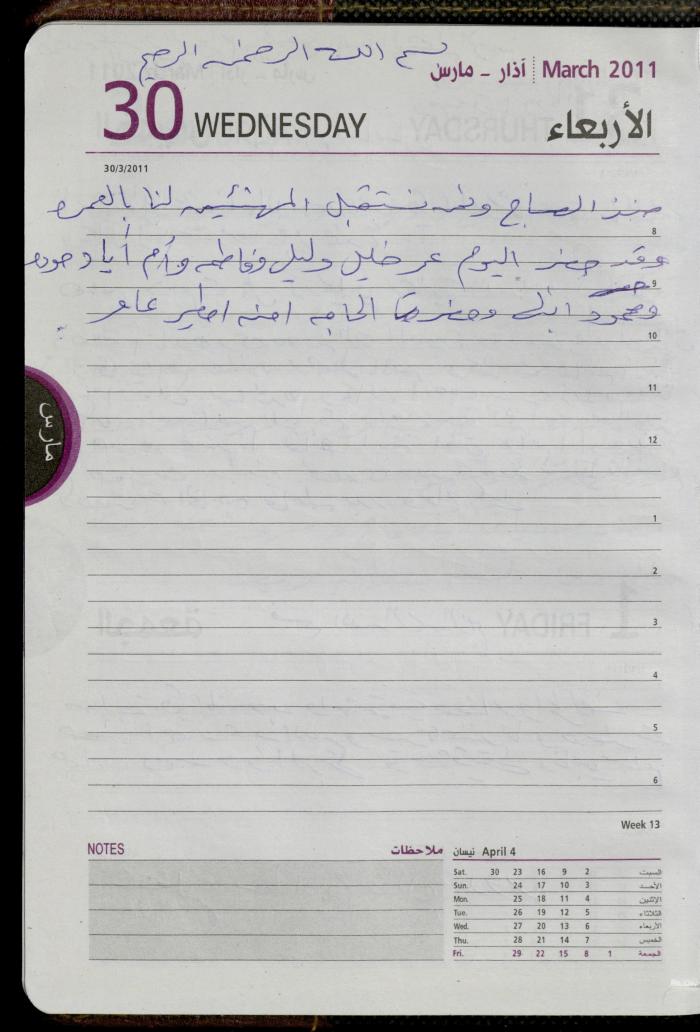 بسم الله الرحمن الرحيم
March 2011 آذار - مارس
30 WEDNESDAY الأربعاء
30/3/2011
منذ الصباح ونحن نستقبل المهنئين لنا بالعمره
8
وقد حضر اليوم عمر خليل وليلى وفاطمه وأم أياد حوده
9
ومحمود ابنها وحضرت الحاجه امنه اطير عامر
10
11
12
مارس
1
2
3
4
5
6
Week 13
NOTES ملاحظات
نيسان April 4
Sat. 30 23 16 9 2 السبت
Sun. 24 17 10 3 الأحد
Mon. 25 18 11 4 الإثنين
Tue. 26 19 12 5 الثلاثاء
Wed. 27 20 13 6 الأربعاء
Thu. 28 21 14 7 الخميس
Fri. 29 22 15 8 1 الجمعة